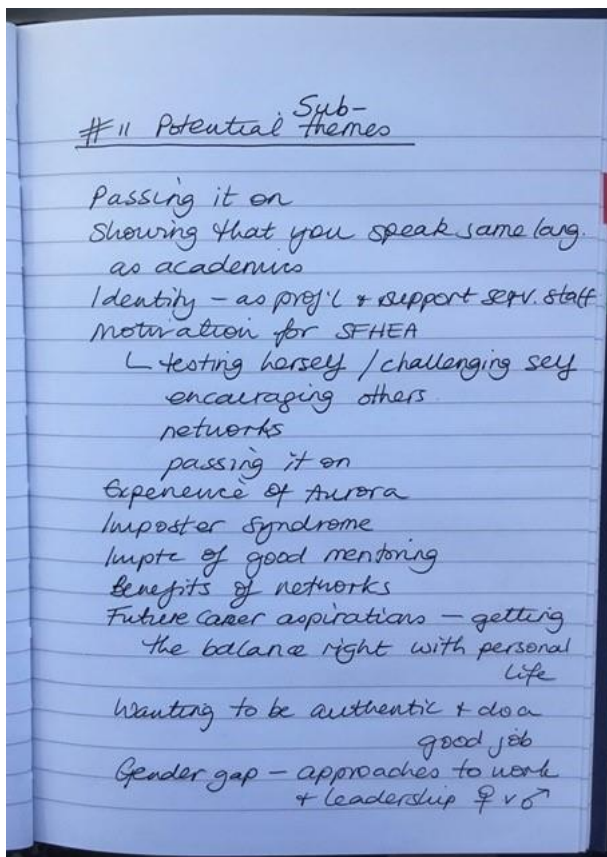 #11 Potential Sub-
themes
Passing it on
Showing that you speak same lang.
as academics
Identity – as prof'l + support serv. staff
Motivation for SFHEA
testing herself / challenging self
encouraging others
networks
passing it on
Experience of Aurora
Imposter Syndrome
Imptc of good mentoring
Benefits of networks
Future career aspirations – getting
the balance right with personal
life
Wanting to be authentic + do a
good job
Gender gap – approaches to work
+ leadership ♀ v ♂